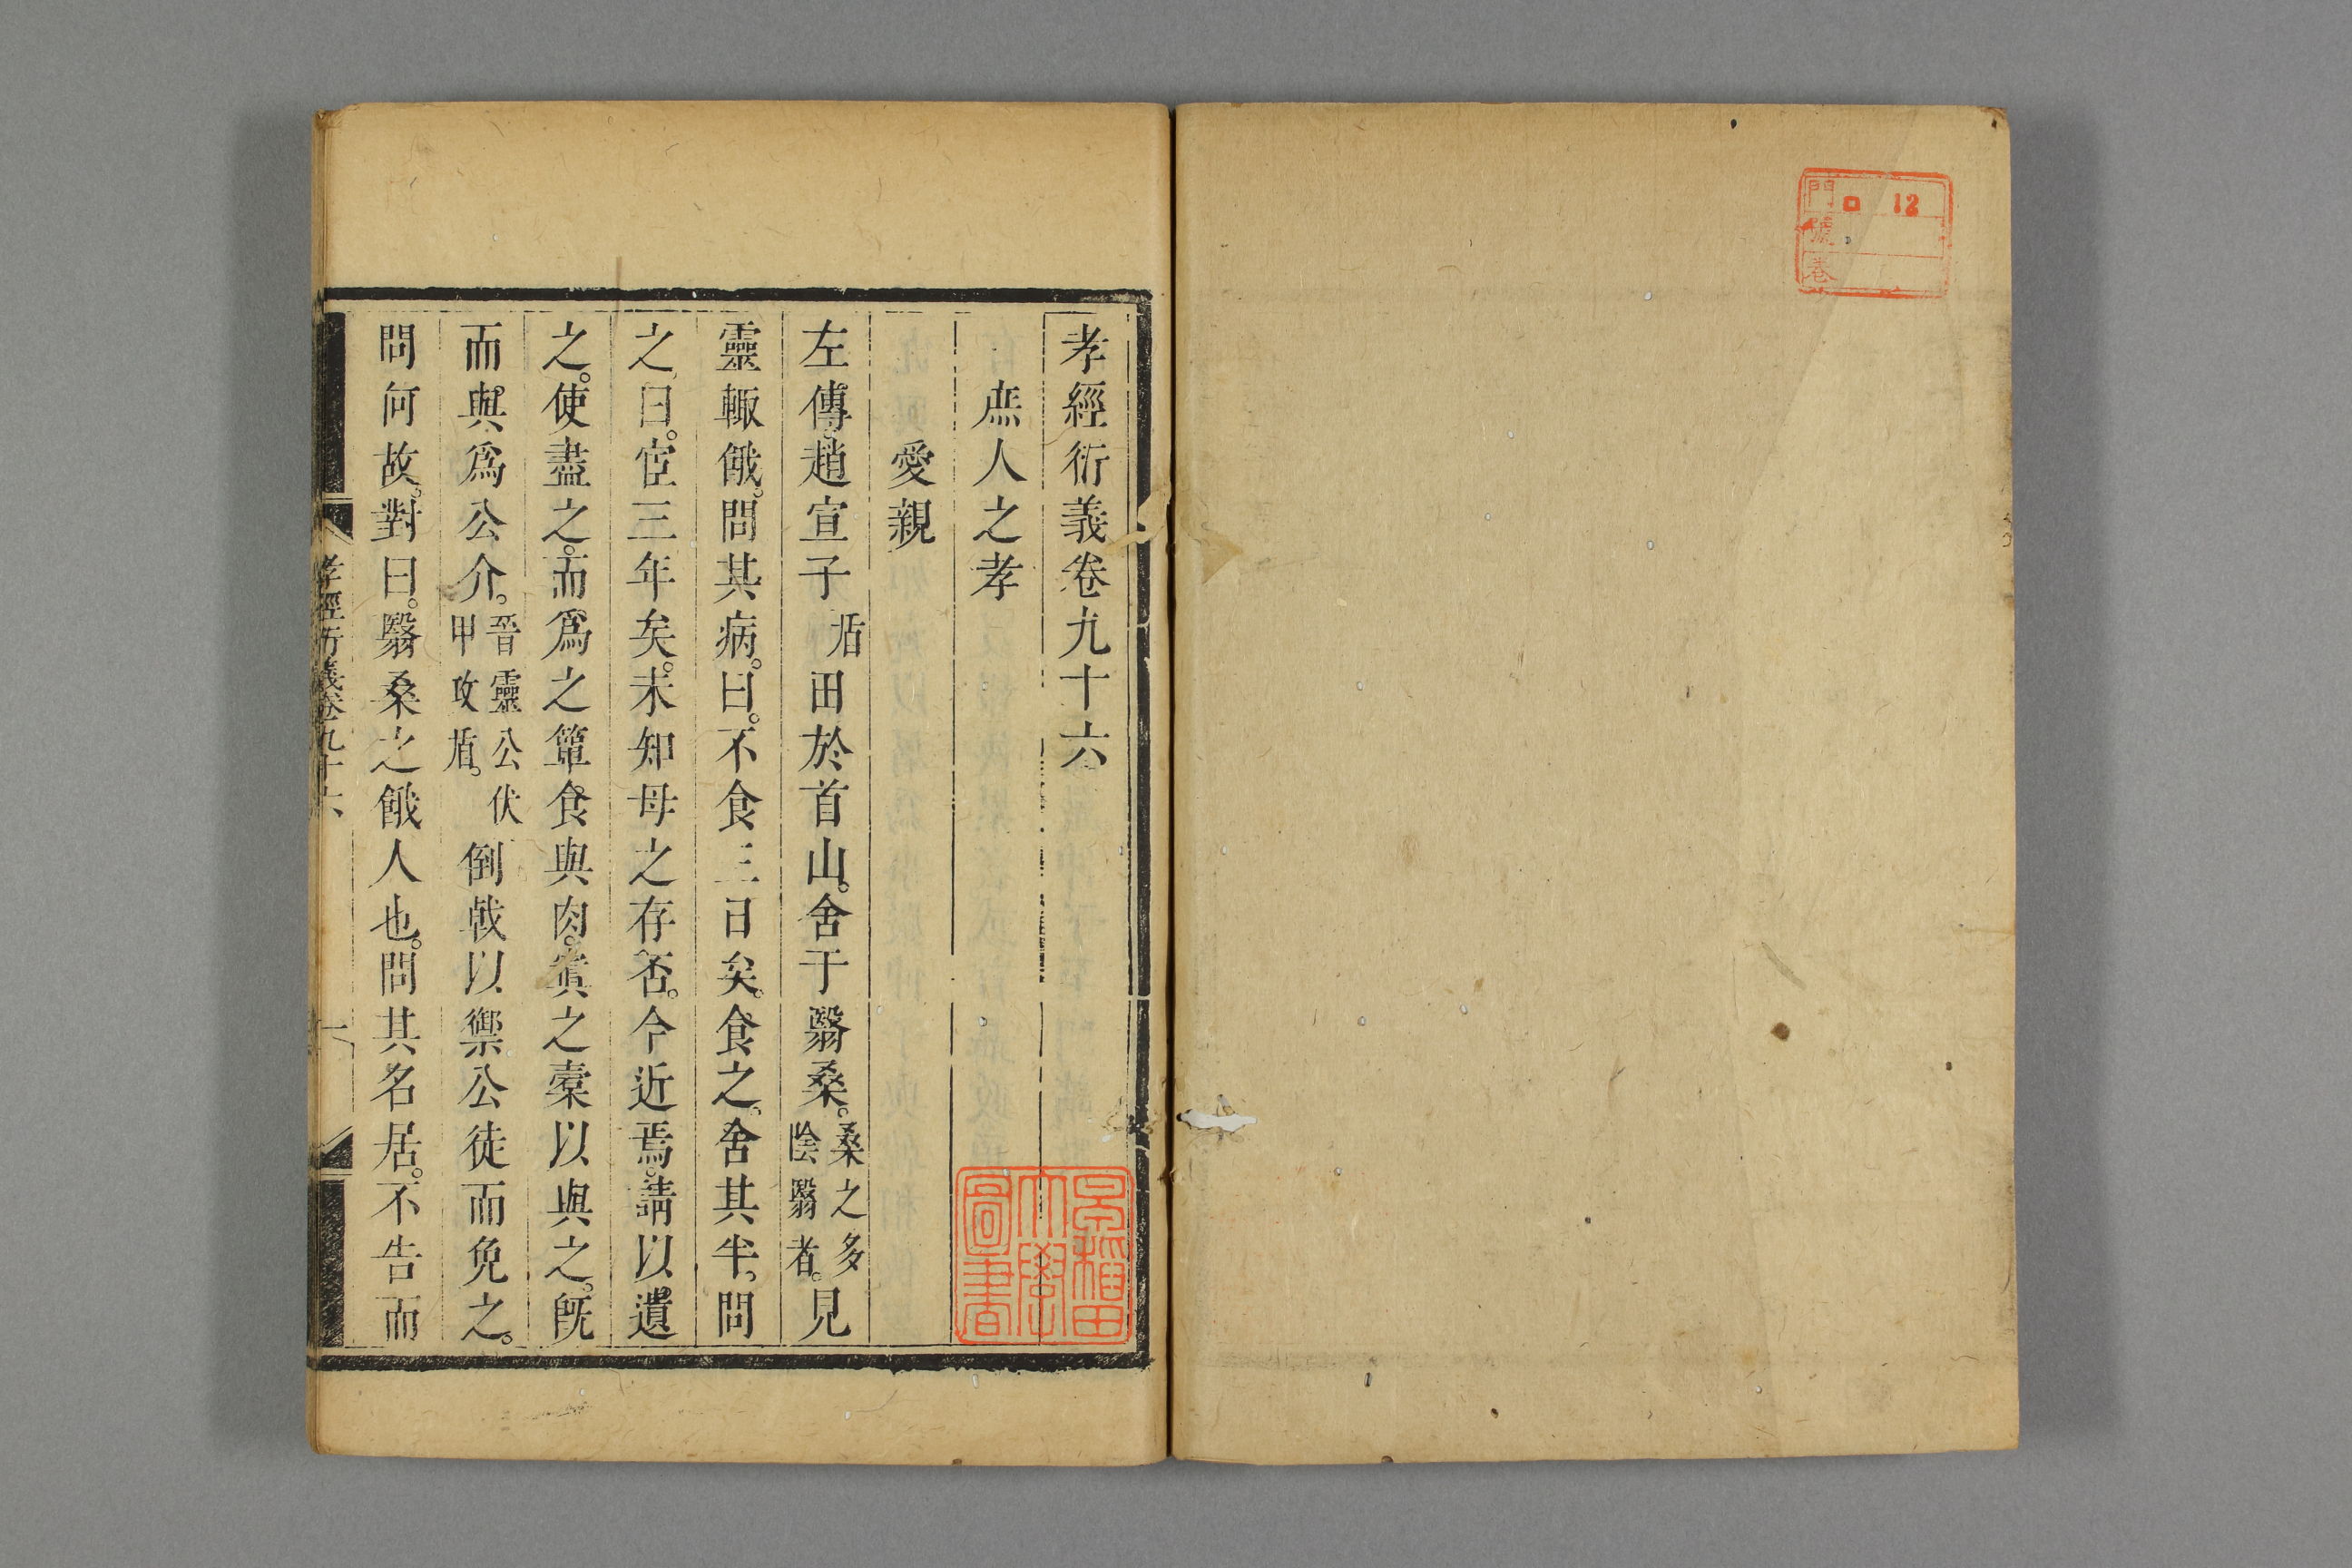 門 口 12
號
巻
孝經衍義卷九十六
庶人之孝
愛親
左傳趙宣子盾田於首山。舍于翳桑。桑之多陰翳者。見
靈輒餓。問其病。曰。不食三日矣。食之。舍其半。問
之。曰。宦三年矣。未知母之存否。今近焉。請以遺
之。使盡之。而爲之簞食與肉。寘之橐以與之。旣
而與爲公介。晉靈公伏甲攻盾。倒戟以禦公徒而免之。
問何故。對曰。翳桑之餓人也。問其名居。不吿而
孝經衍義卷九十六 一
早稻田大學圖書